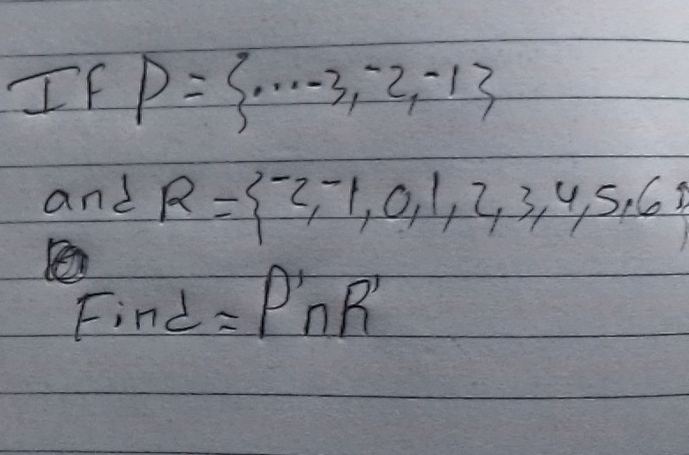 If P = {....-3, -2, -1}
and R = {-2, -1, 0, 1, 2, 3, 4, 5, 6}
Find = P'∩R'